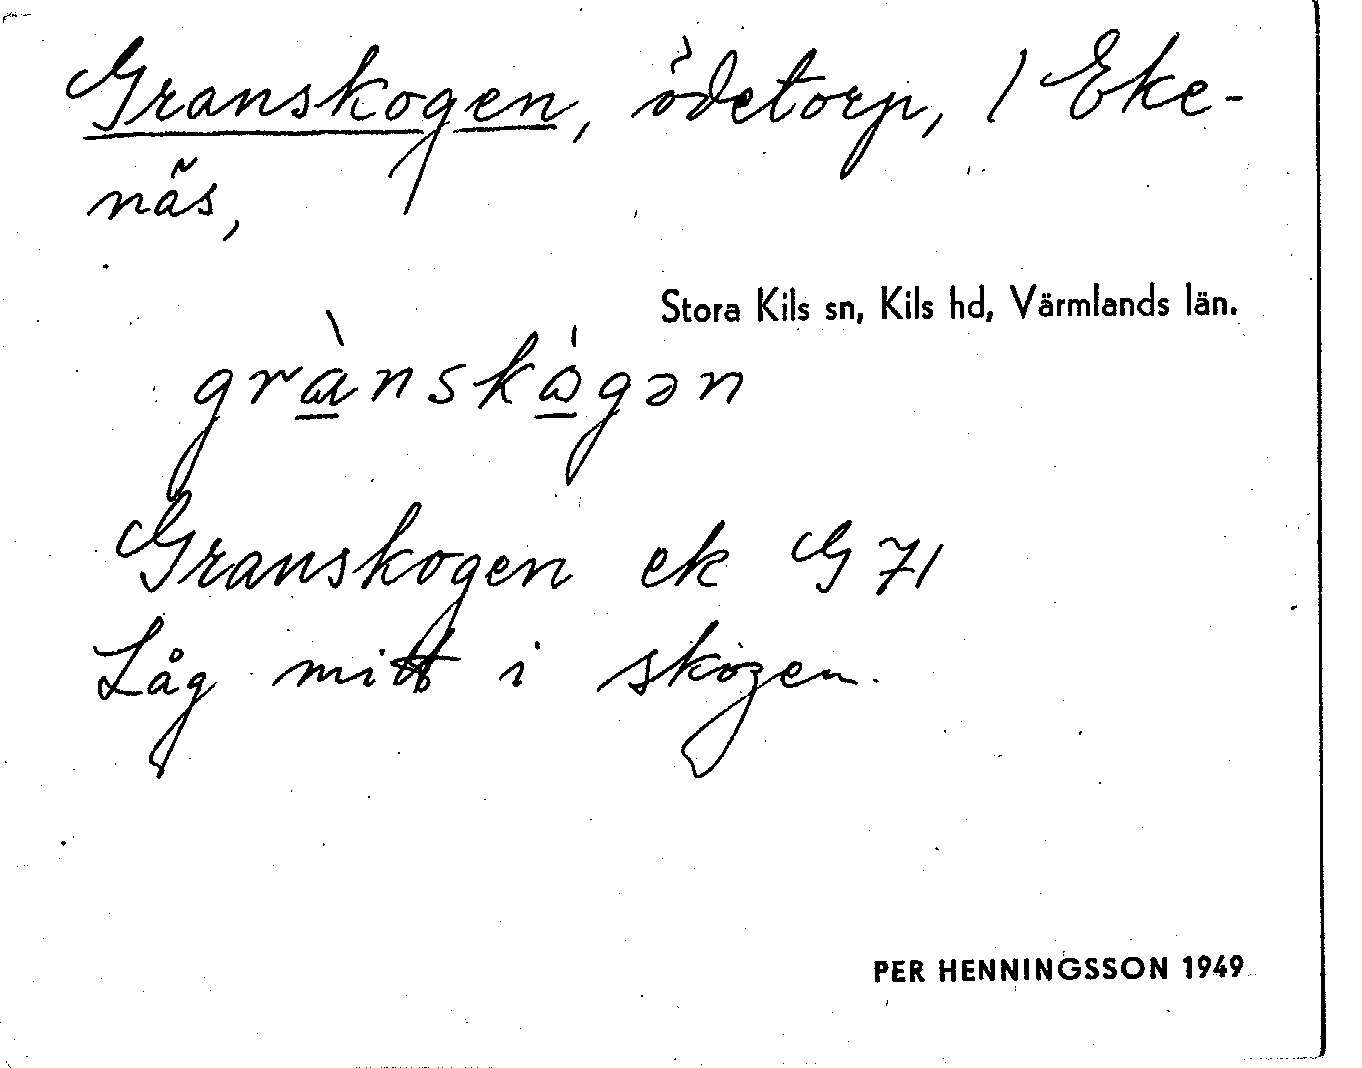 Granskogen, ödetorp, / Eke-
näs,
Stora Kils sn, Kils hd, Värmlands län.
grànskógən
Granskogen ek G 71
Låg mitt i skogen.
PER HENNINGSSON 1949